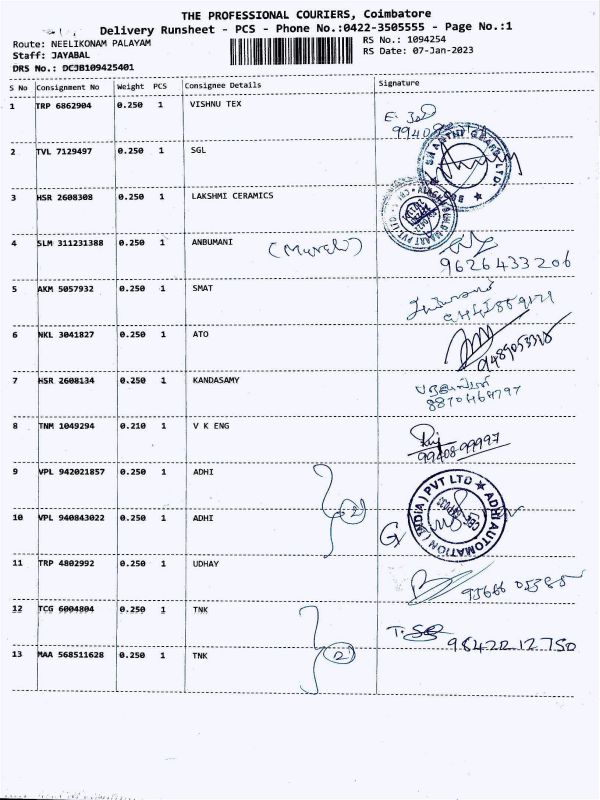 THE PROFESSIONAL COURIERS, Coimbatore
Delivery Runsheet - PCS - Phone No.:0422-3505555 - Page No.:1
Route: NEELIKONAM PALAYAM
RS No.: 1094254
Staff: JAYABAL
RS Date: 07-Jan-2023
DRS No.: DCJB109425401
S No Consignment No Weight PCS Consignee Details Signature
1 TRP 6862904 0.250 1 VISHNU TEX
2 TVL 7129497 0.250 1 SGL
SHANTHI GEARS LTD
3 HSR 2608308 0.250 1 LAKSHMI CERAMICS
4 SLM 311231388 0.250 1 ANBUMANI
9626433206
5 AKM 5057932 0.250 1 SMAT
6 NKL 3041827 0.250 1 ATO
7 HSR 2608134 0.250 1 KANDASAMY
8 TNM 1049294 0.210 1 V K ENG
99408 99997
9 VPL 942021857 0.250 1 ADHI
2
ADHI AUTOMATION (INDIA) PVT LTD
10 VPL 940843022 0.250 1 ADHI
11 TRP 4802992 0.250 1 UDHAY
12 TCG 6004804 0.250 1 TNK
98422 12750
13 MAA 568511628 0.250 1 TNK
2